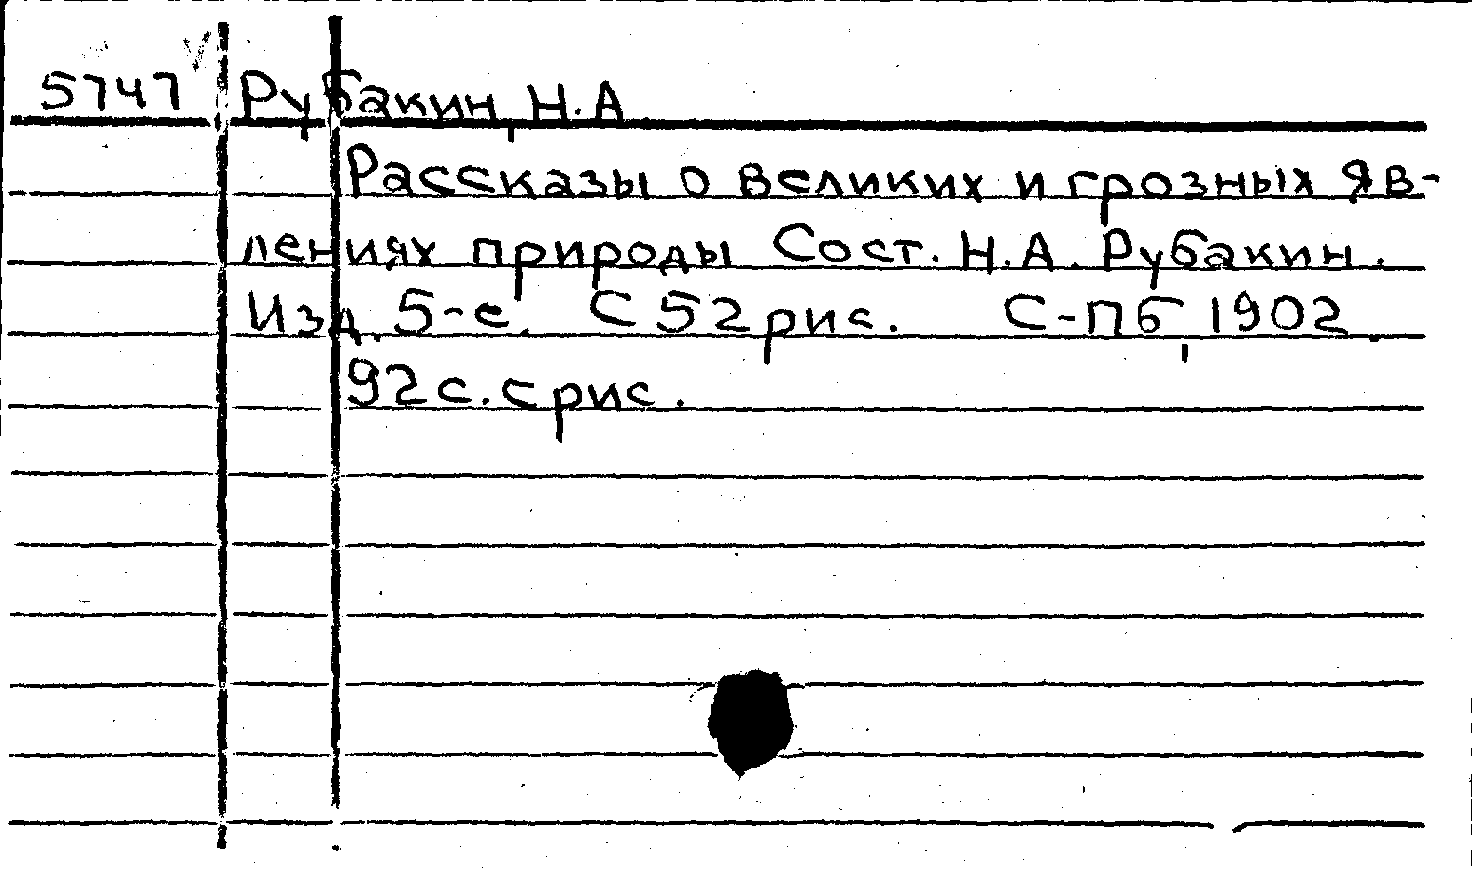 5747 Рубакин, Н.А
Рассказы о великих и грозных яв-
лениях природы Сост. Н.А. Рубакин.
Изд. 5-е. С 52 рис. С-Пб, 1902.
92 с. с рис.